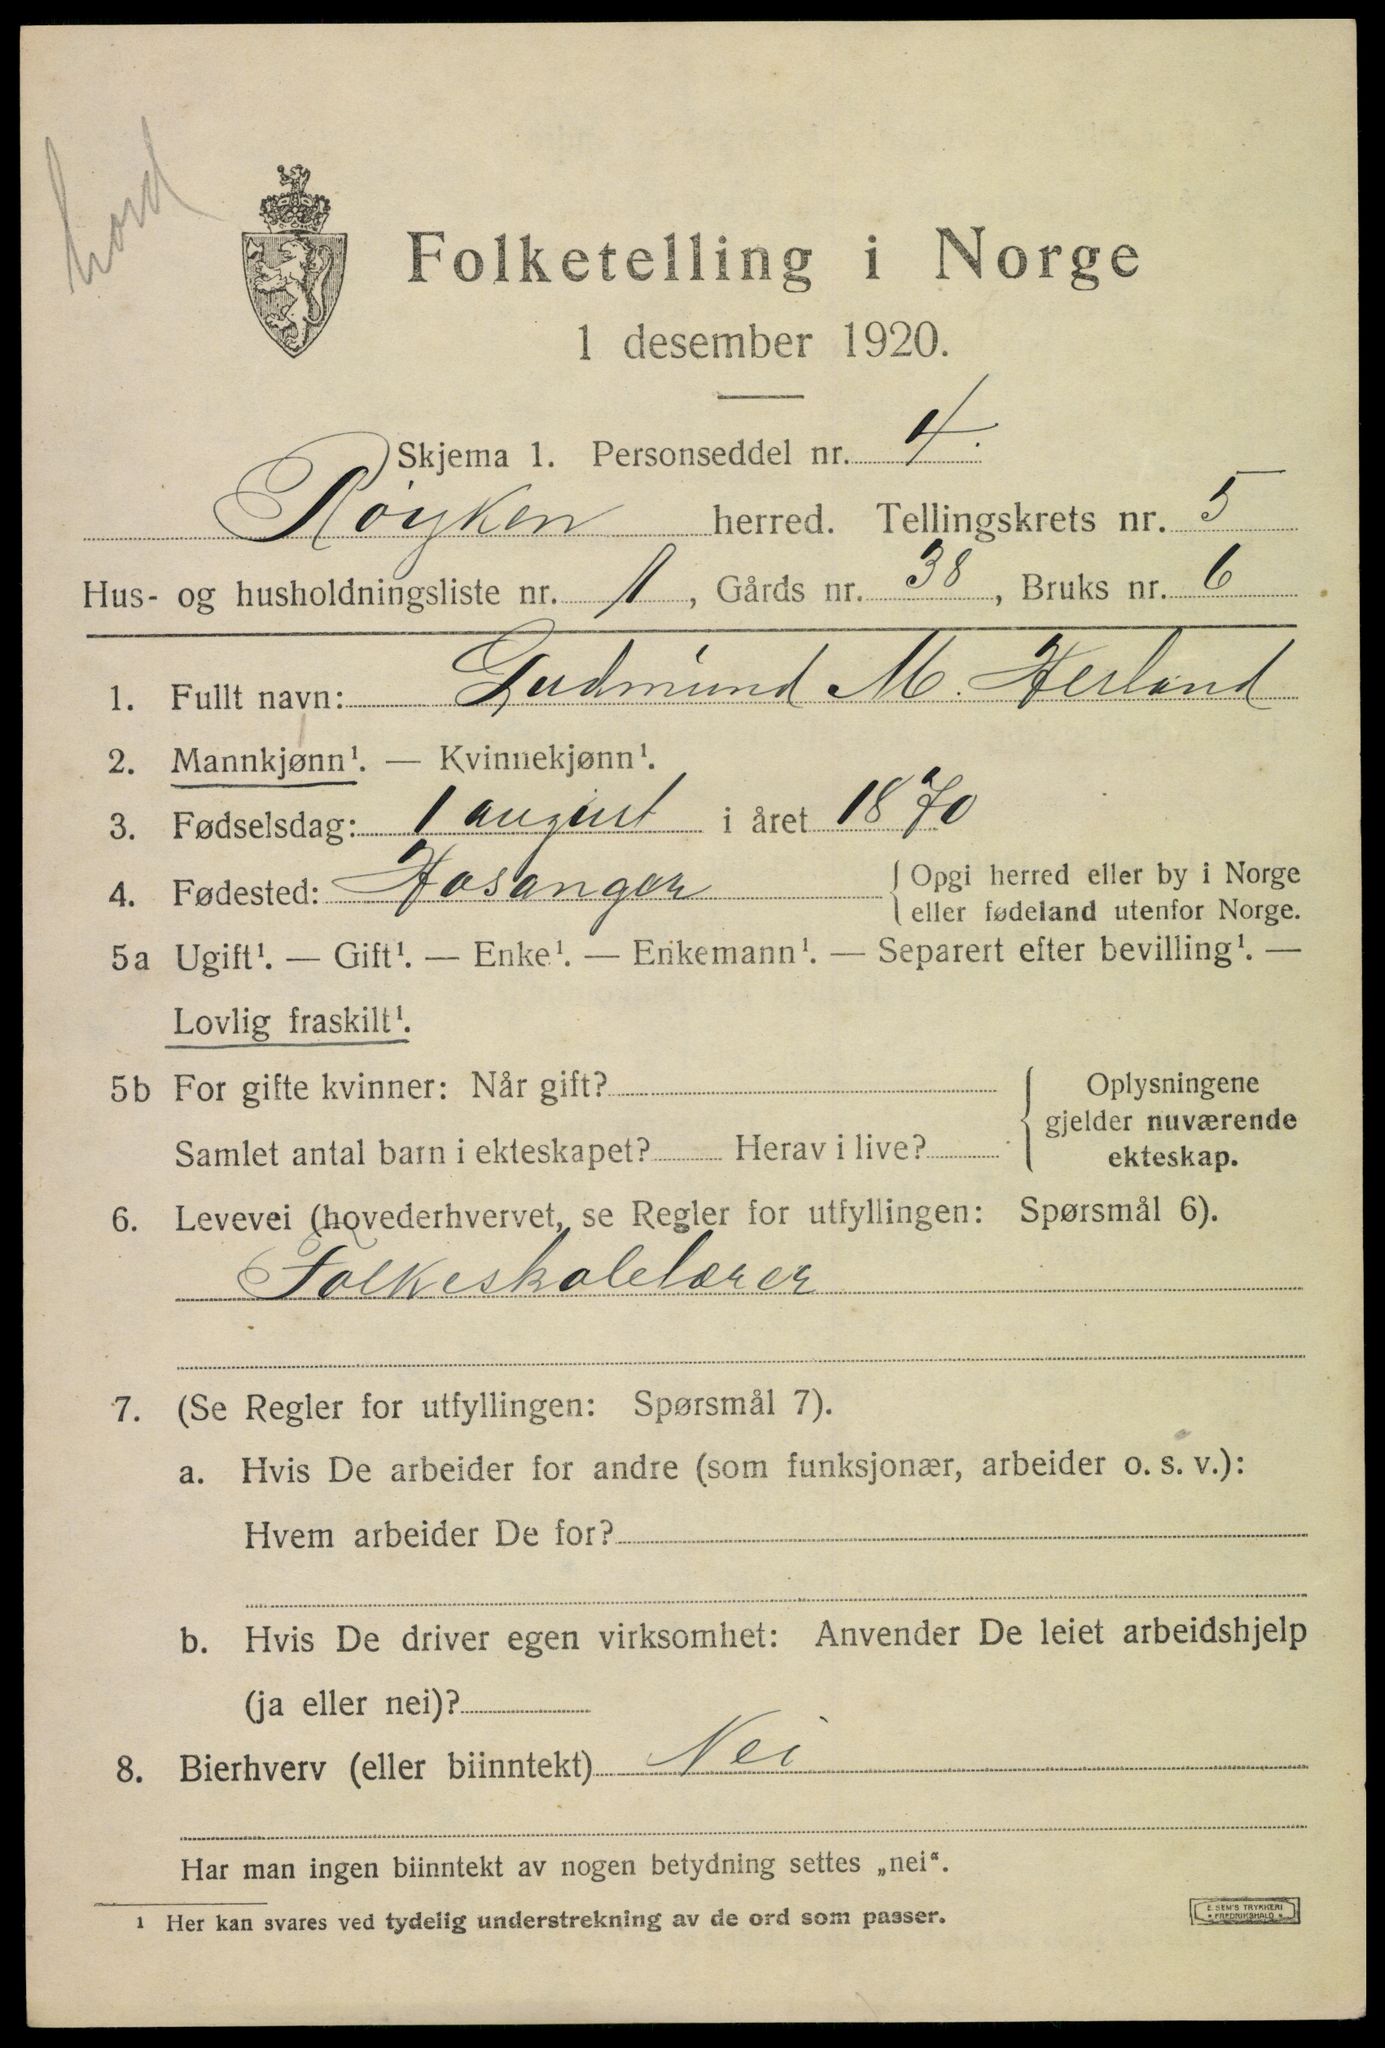 hord
Folketelling i Norge
1 desember 1920.
Skjema 1. Personseddel nr. 4.
Røyken herred. Tellingskrets nr. 5
Hus- og husholdningsliste nr. 1, Gårds nr. 38, Bruks nr. 6
1. Fullt navn: Gudmund M. Herland
2. Mannkjønn¹. — Kvinnekjønn¹.
3. Fødselsdag: 1 august i året 1870
4. Fødested: Hosanger { Opgi herred eller by i Norge
eller fødeland utenfor Norge.
5a Ugift¹. — Gift¹. — Enke¹. — Enkemann¹. — Separert efter bevilling¹. —
Lovlig fraskilt¹.
5b For gifte kvinner: Når gift? { Oplysningene
gjelder nuværende
Samlet antal barn i ekteskapet? Herav i live? ekteskap.
6. Levevei (hovederhvervet, se Regler for utfyllingen: Spørsmål 6).
Folkeskolelærer
7. (Se Regler for utfyllingen: Spørsmål 7).
a. Hvis De arbeider for andre (som funksjonær, arbeider o. s. v.):
Hvem arbeider De for?
b. Hvis De driver egen virksomhet: Anvender De leiet arbeidshjelp
(ja eller nei)?
8. Bierhverv (eller biinntekt) Nei
Har man ingen biinntekt av nogen betydning settes „nei“.
¹ Her kan svares ved tydelig understrekning av de ord som passer.
E. SEM'S TRYKKERI
• FREDRIKSHALD •